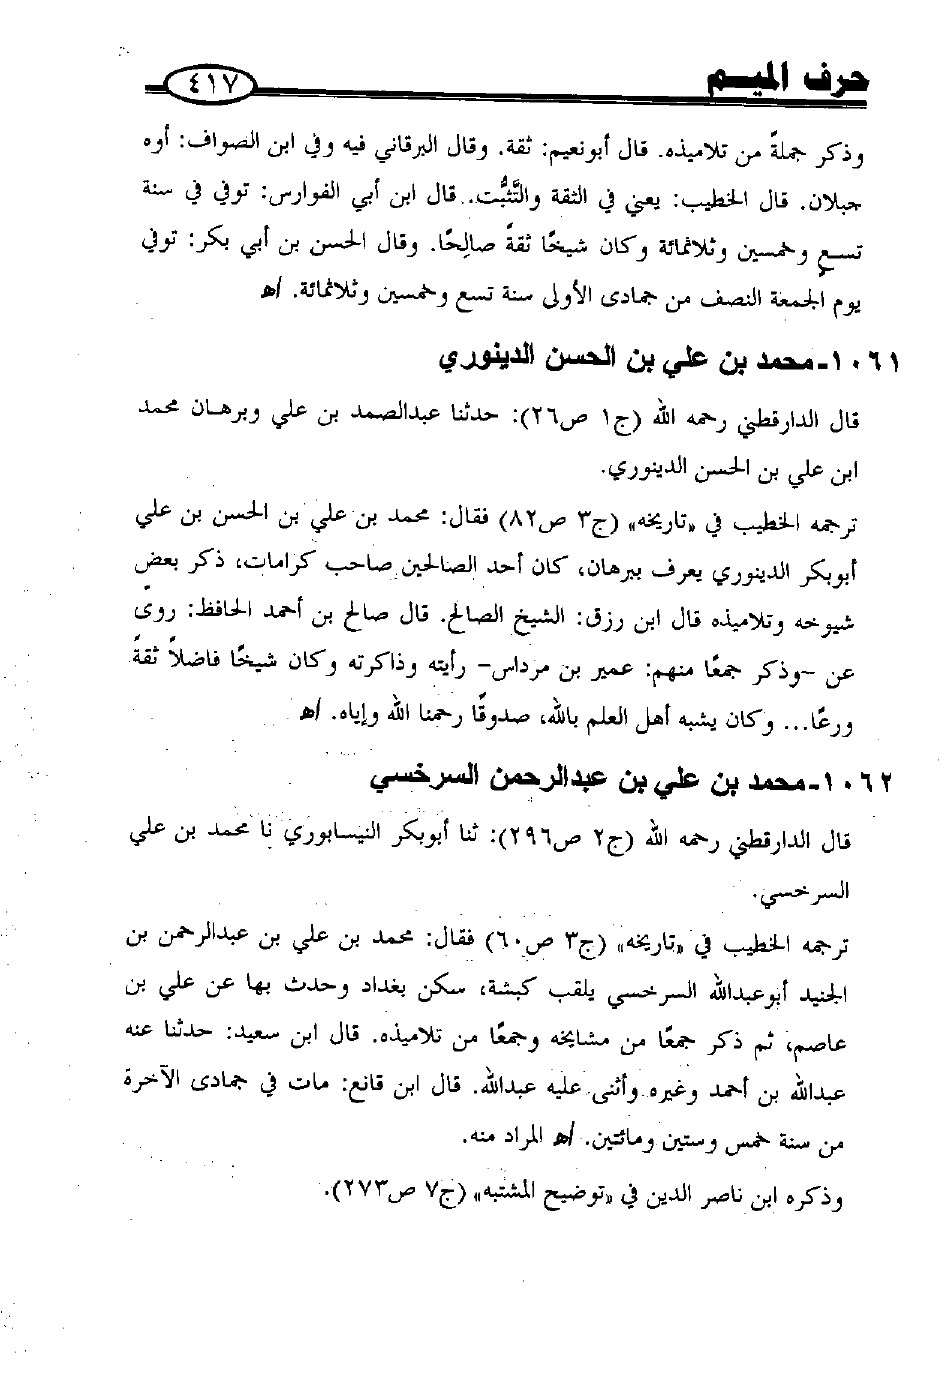 حرف الميم
٤١٧
وذكر جملةً من تلاميذه. قال أبونعيم: ثقة. وقال البرقاني فيه وفي ابن الصواف: أوه
جبلان. قال الخطيب: يعني في الثقة والتَّثبُّت.. قال ابن أبي الفوارس: توفي في سنة
تسعٍ وخمسين وثلاثمائة وكان شيخًا ثقةً صالحًا. وقال الحسن بن أبي بكر: توفي
يوم الجمعة النصف من جمادى الأولى سنة تسع وخمسين وثلاثمائة. اهـ
١٠٦١- محمد بن علي بن الحسن الدينوري
قال الدارقطني رحمه الله (ج١ ص٢٦): حدثنا عبدالصمد بن علي وبرهان محمد
ابن علي بن الحسن الدينوري.
ترجمه الخطيب في «تاريخه» (ج٣ ص٨٢) فقال: محمد بن علي بن الحسن بن علي
أبوبكر الدينوري يعرف ببرهان، كان أحد الصالحين صاحب كرامات، ذكر بعض
شيوخه وتلاميذه قال ابن رزق: الشيخ الصالح. قال صالح بن أحمد الحافظ: روى
عن -وذكر جمعًا منهم: عمير بن مرداس- رأيته وذاكرته وكان شيخًا فاضلاً ثقةً
ورعًا... وكان يشبه أهل العلم بالله، صدوقًا رحمنا الله وإياه. اهـ
١٠٦٢- محمد بن علي بن عبدالرحمن السرخسي
قال الدارقطني رحمه الله (ج٢ ص٢٩٦): ثنا أبوبكر النيسابوري نا محمد بن علي
السرخسي.
ترجمه الخطيب في «تاريخه» (ج٣ ص٦٠) فقال: محمد بن علي بن عبدالرحمن بن
الجنيد أبوعبدالله السرخسي يلقب كبشة، سكن بغداد وحدث بها عن علي بن
عاصم، ثم ذكر جمعًا من مشايخه وجمعًا من تلاميذه. قال ابن سعيد: حدثنا عنه
عبدالله بن أحمد وغيره وأثنى عليه عبدالله. قال ابن قانع: مات في جمادى الآخرة
من سنة خمس وستين ومائتين. اهـ المراد منه.
وذكره ابن ناصر الدين في «توضيح المشتبه» (ج٧ ص٢٧٣).